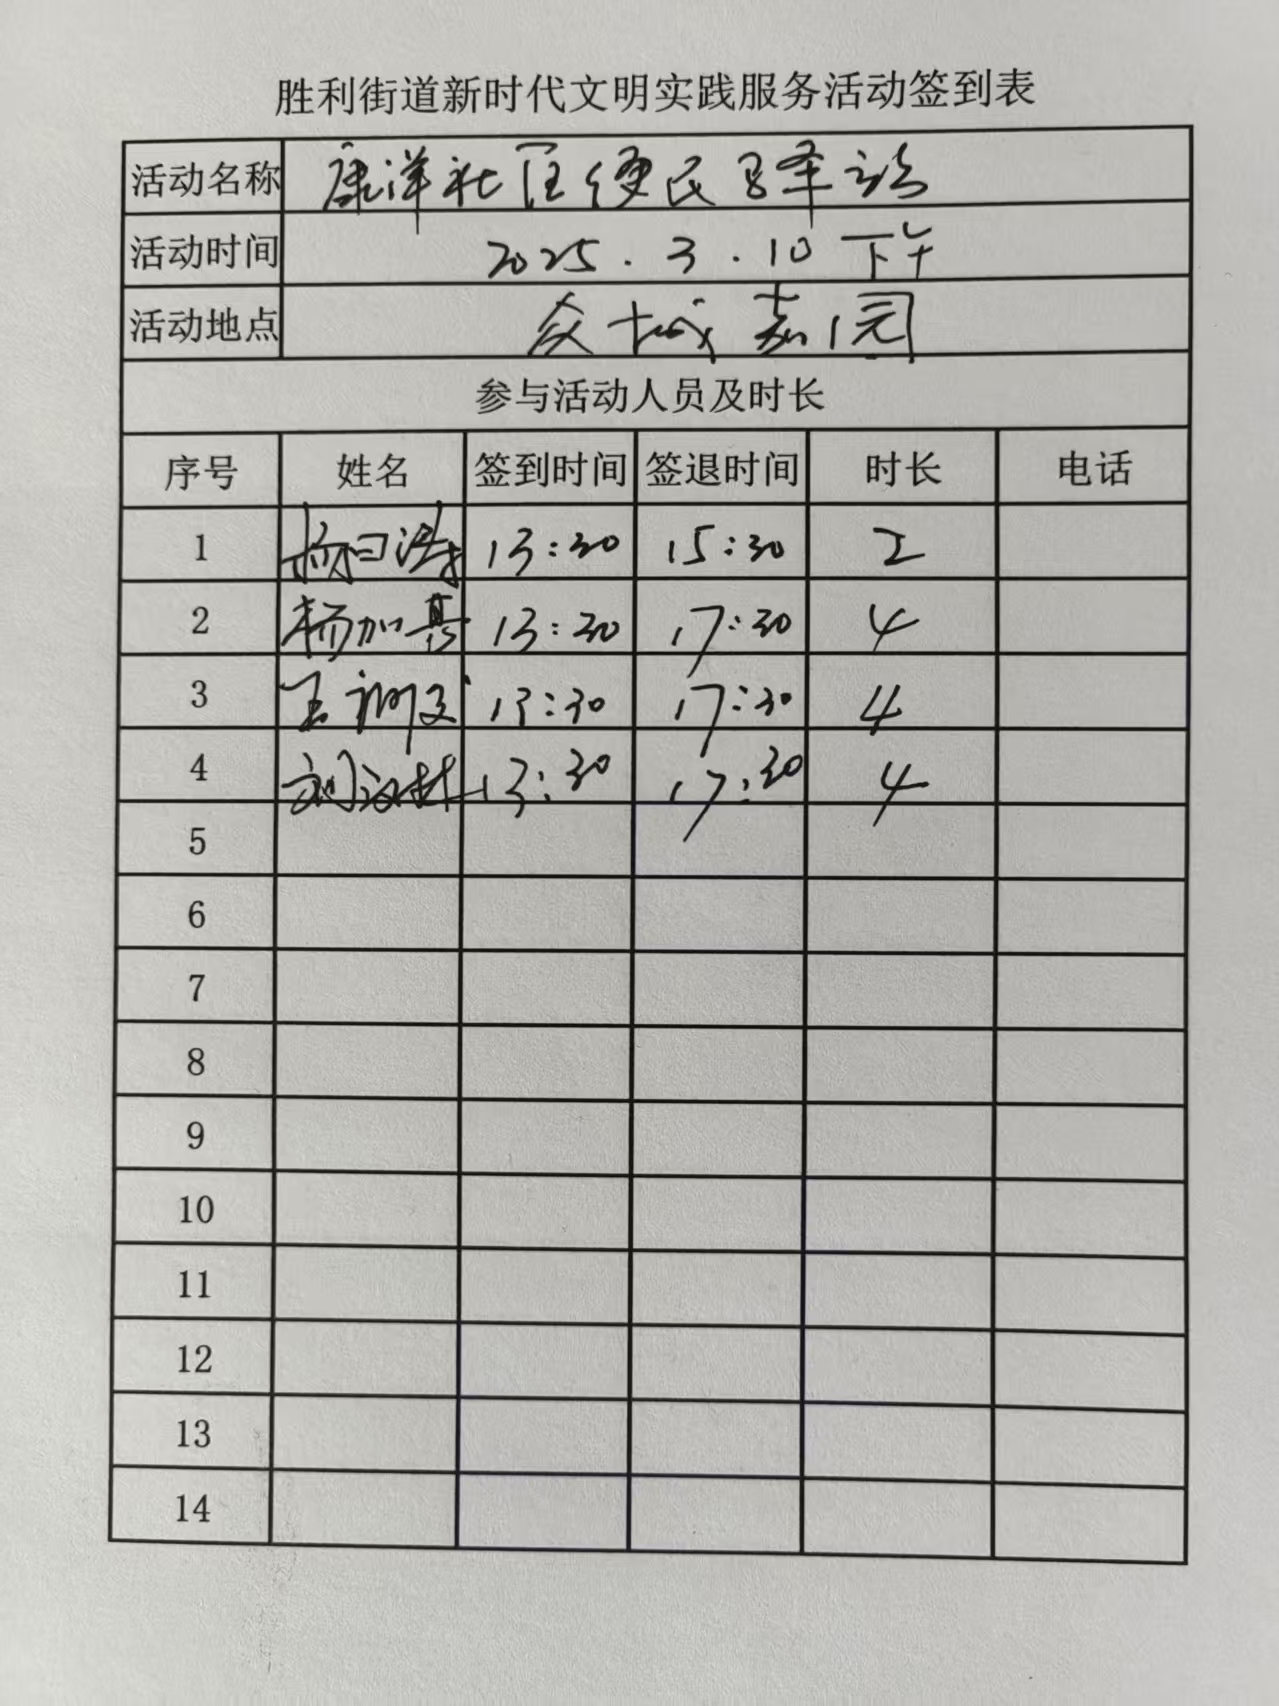 胜利街道新时代文明实践服务活动签到表
活动名称 康洋社区便民驿站
活动时间 2025.3.10 下午
活动地点 众城嘉园
参与活动人员及时长
序号 姓名 签到时间 签退时间 时长 电话
1 杨日 13:30 15:30 2
2 杨加 13:30 17:30 4
3 王 13:30 17:30 4
4 刘汉林 13:30 17:30 4
5
6
7
8
9
10
11
12
13
14